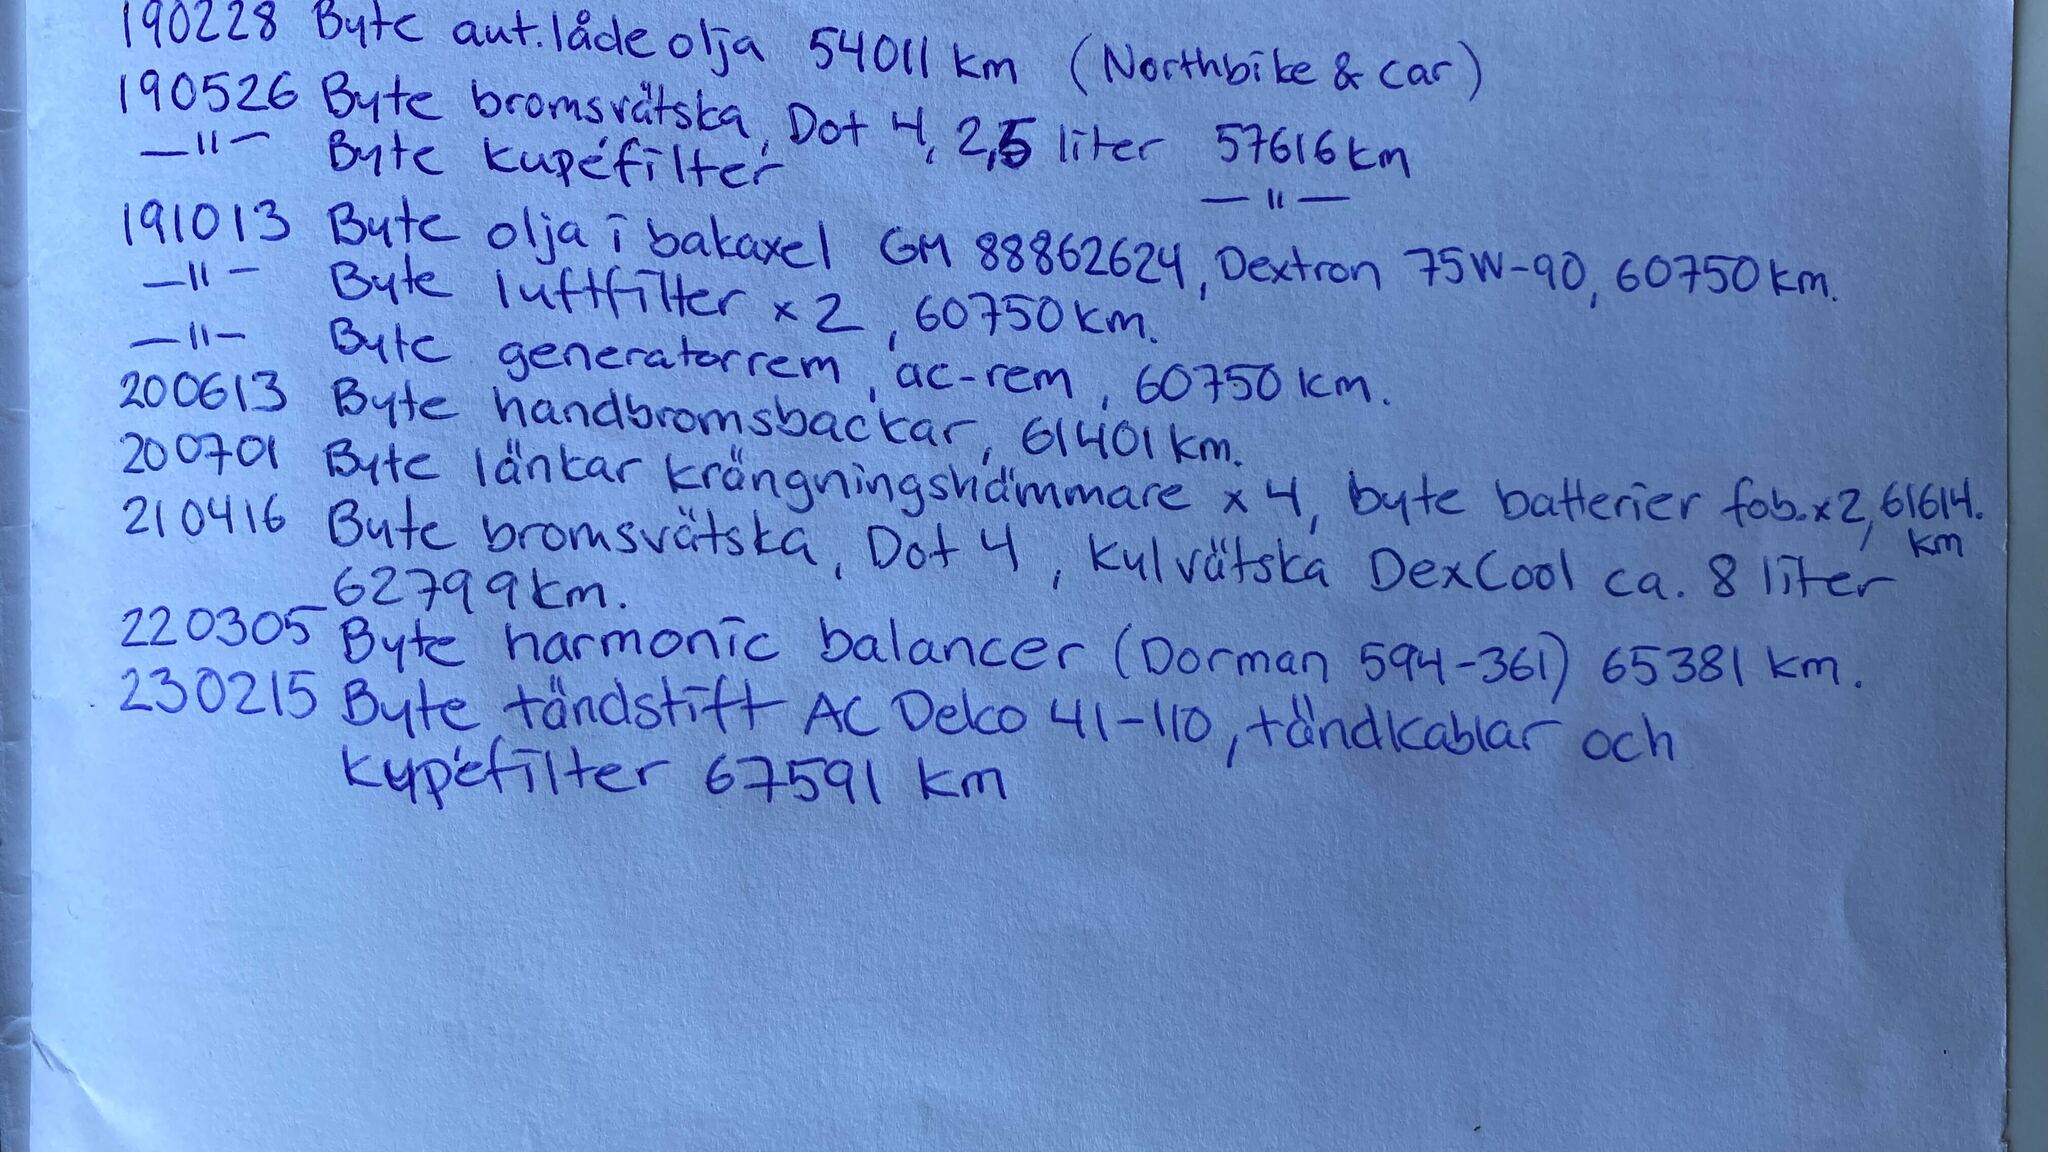 190228 Byte aut.låde olja 54011 km (Northbike & car)
190526 Byte bromsvätska, Dot 4, 2,5 liter 57616 km
—"— Byte kupéfilter —"—
191013 Byte olja i bakaxel GM 88862624, Dextron 75W-90, 60750 km.
—"— Byte luftfilter x 2, 60750 km.
—"— Byte generatorrem, ac-rem, 60750 km.
200613 Byte handbromsbackar, 61401 km.
200701 Byte länkar krängningshämmare x 4, byte batterier fob. x2, 61614. km
210416 Byte bromsvätska, Dot 4, kylvätska DexCool ca. 8 liter
62799 km.
220305 Byte harmonic balancer (Dorman 594-361) 65381 km.
230215 Byte tändstift AC Delco 41-110, tändkablar och
kypéfilter 67591 km